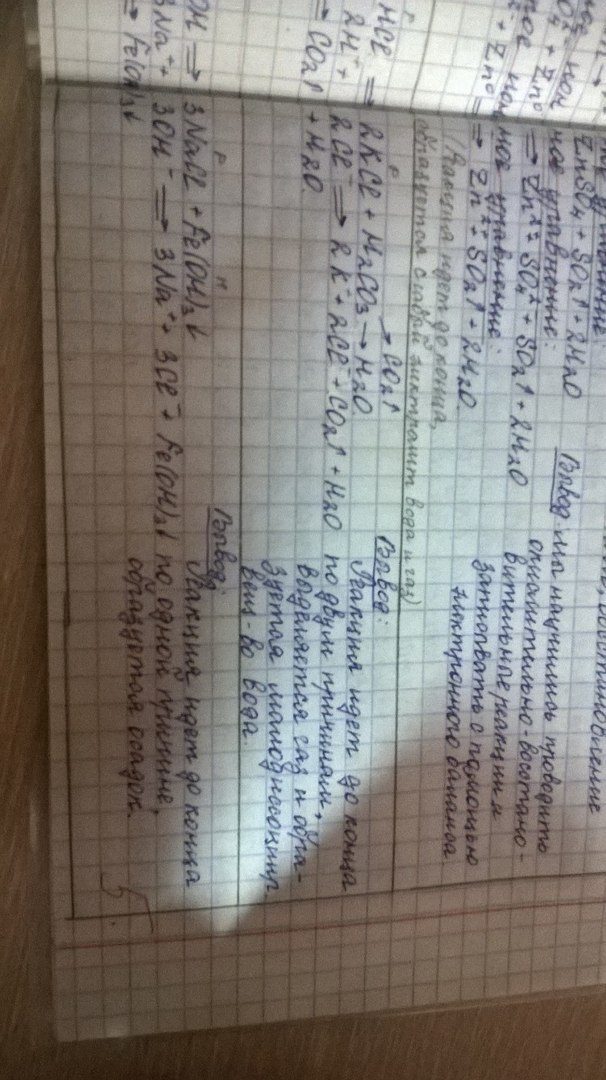 ZnSO4 + SO2↑ + 2H2O
ное уравнение:
O4 + Zn0 ⇒ Zn2+ + SO4 2- + SO2↑ + 2H2O
ное уравнение:
+ Zn0 ⇒ Zn2+ + SO2↑ + 2H2O
(Реакция идет до конца,
образуется слабый электролит вода и газ)
Вывод: мы научились проводить
окислительно-восстано-
вительные реакции
записывать с помощью
электронного баланса
HCl ⇒ 2KCl + H2CO3 → H2O
→ CO2↑
2H+ + 2Cl- ⇒ 2K+ + 2Cl- + CO2↑ + H2O
⇒ CO2↑ + H2O
Вывод:
Реакция идет до конца
по двум причинам,
выделяется газ и обра-
зуется малодиссоциир.
вещ-во вода.
р н
OH ⇒ 3NaCl + Fe(OH)3↓
3Na+ + 3OH- ⇒ 3Na+ + 3Cl- + Fe(OH)3↓
⇒ Fe(OH)3↓
Вывод:
Реакция идет до конца
по одной причине,
образуется осадок.
5